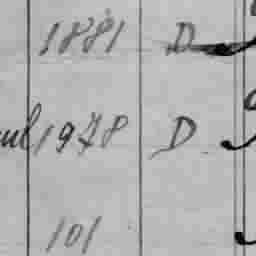 1881 D
1978 D
101